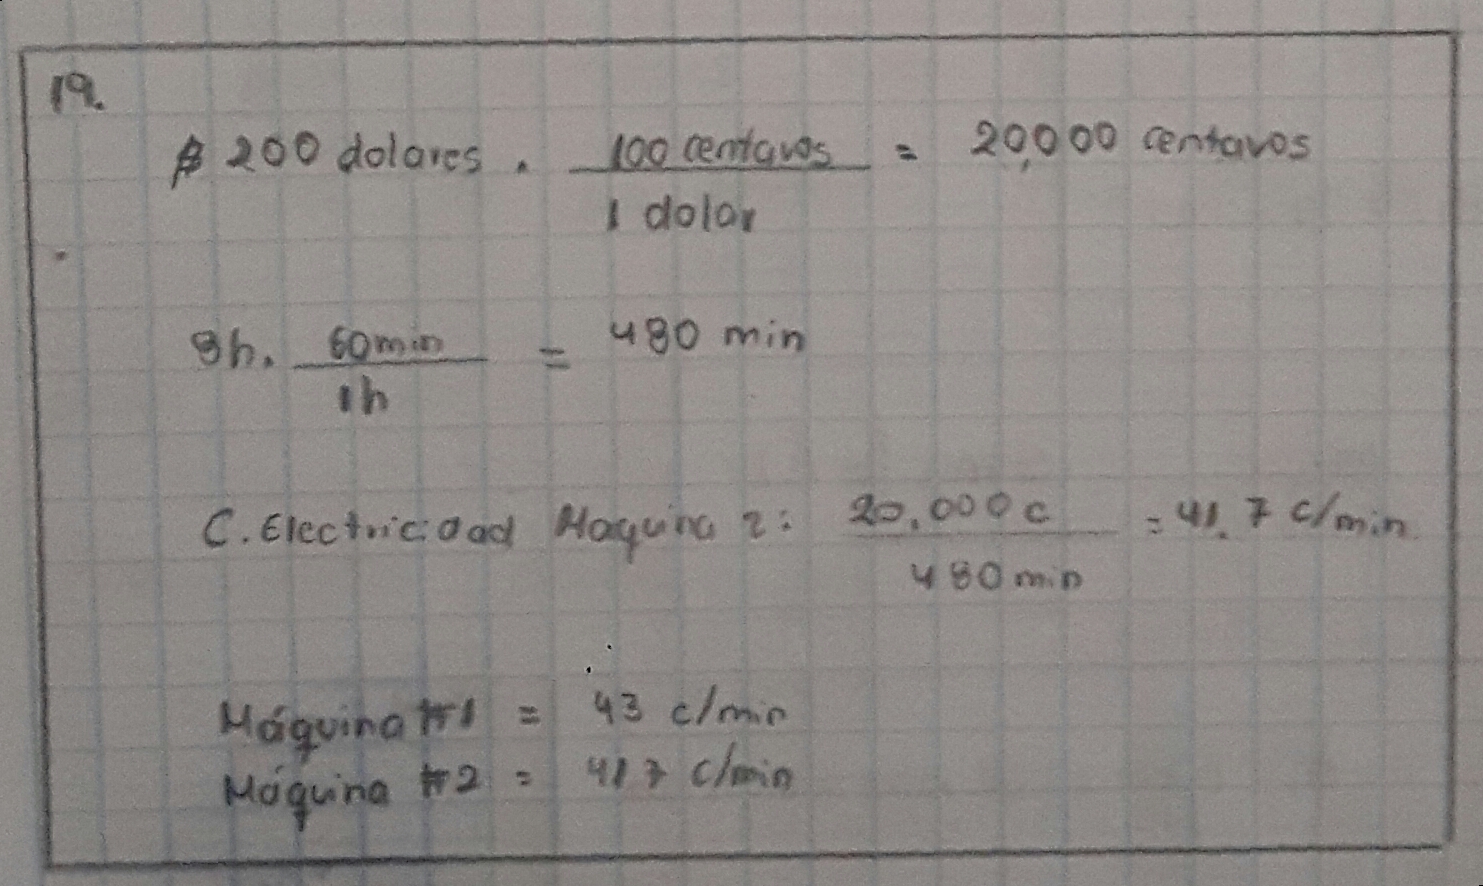 19.
$ 200 dolares . 100 centavos = 20,000 centavos
1 dolar
8h. 60min = 480 min
1h
C. Electricidad Maquina 2: 20,000 c = 41.7 c/min
480 min
Máquina #1 = 43 c/min
Máquina #2 = 41 7 c/min